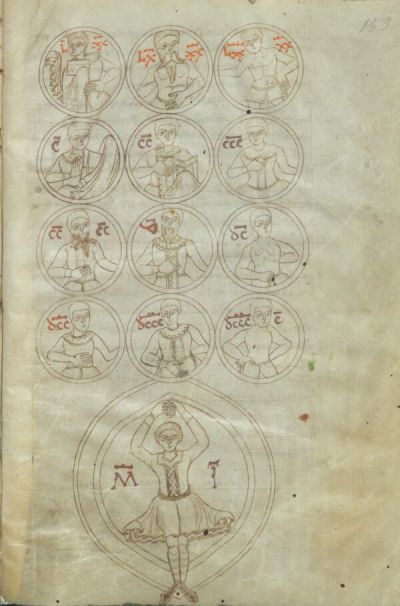 153
L XX LX XX LXX XX
C̅ C̅C̅ C̅C̅C̅
C̅C̅ C̅C̅ D̅ D̅C̅
D̅C̅C̅ D̅C̅C̅C̅ D̅C̅C̅C̅ C̅
M̅ I